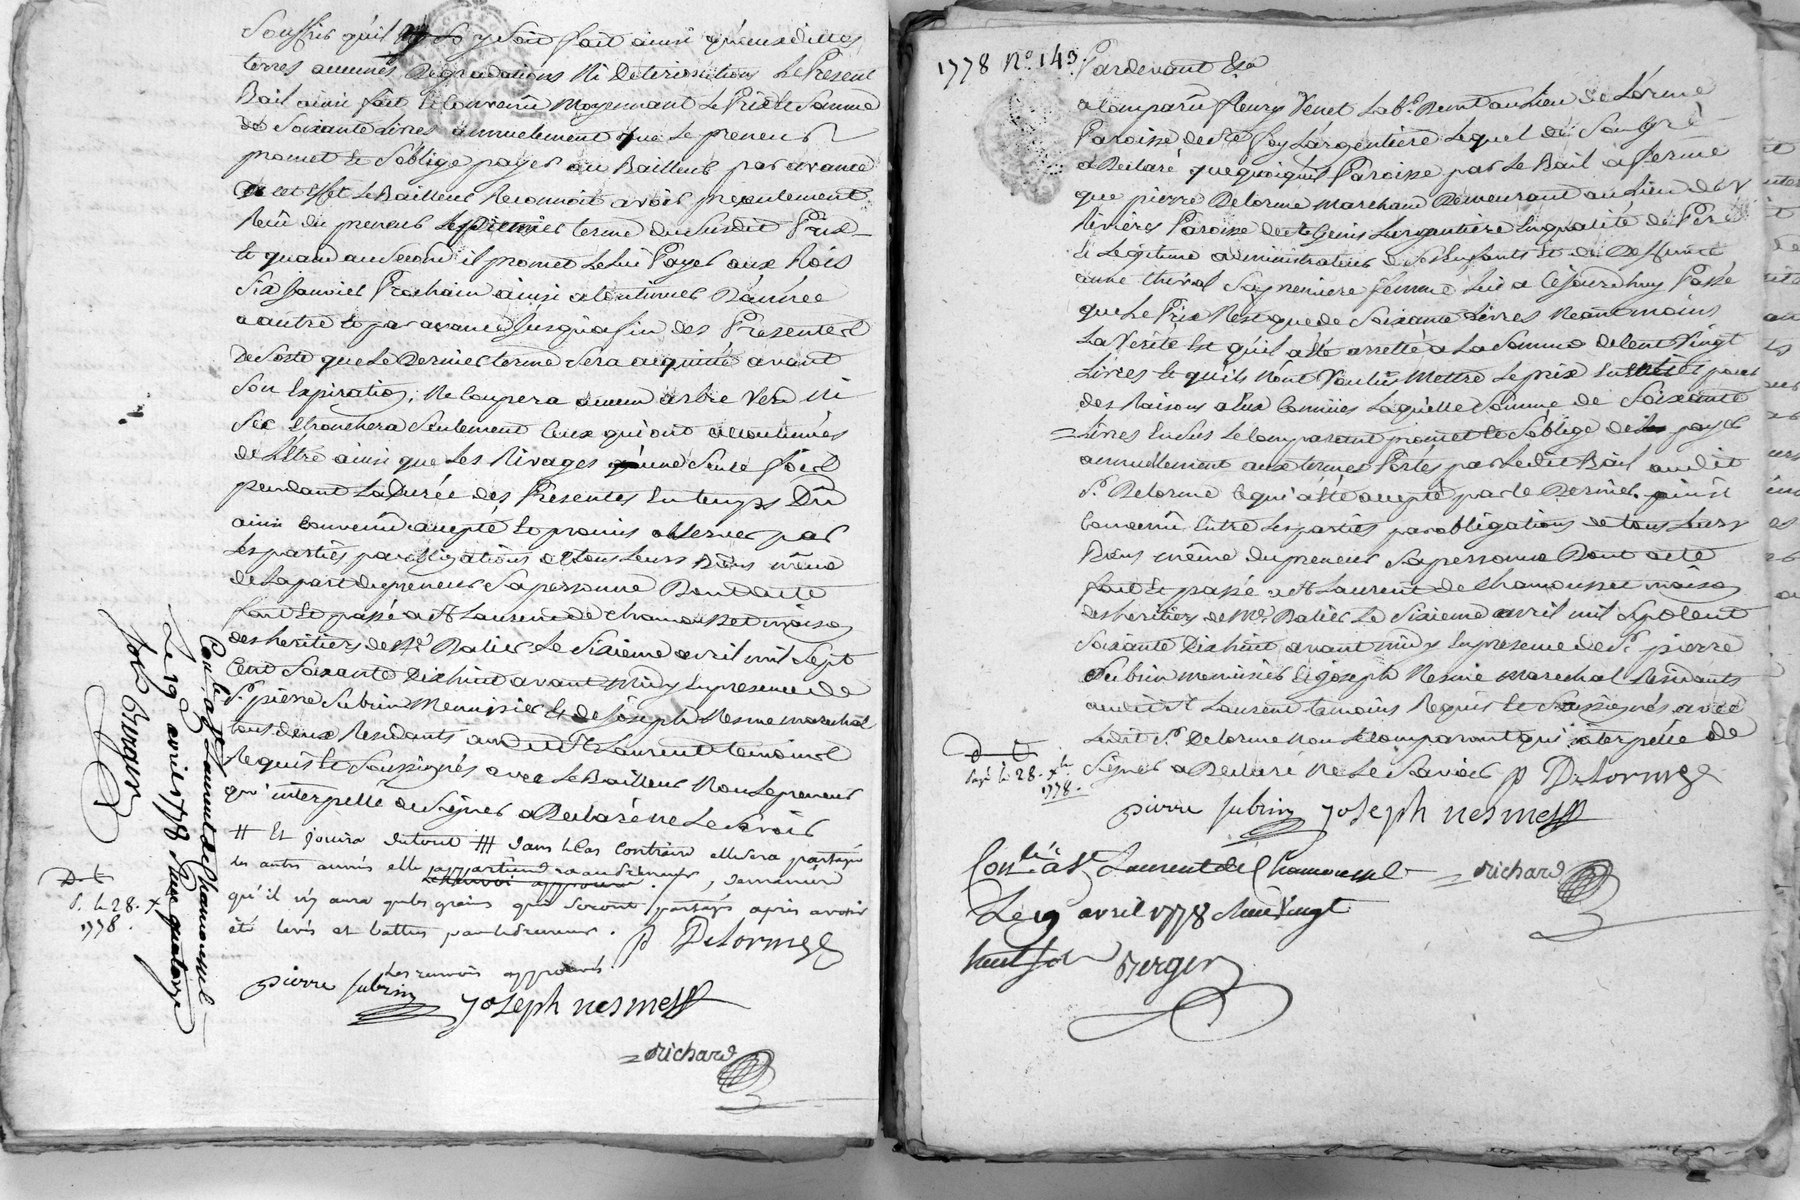 Souffrir qu'il n'y soit fait ainsi qu'aux dittes
terres aucunes Degradations Ni Deteriorations Le Present
Bail ainsi fait et Convenû Moyennant Le Prix et Somme
de Soixante Livres annuelement que Le preneur
promet et S'oblige payer au Bailleur par avance
cet effet Le Bailleur Reconnoit avoir presentement
Reçû du preneur Le premier terme du Susdit Prix
Et quand au Second il promet Le lui Payer aux Rois
Six Janvier Prochain ainsi a Continuer D'année
a autre et par avance Jusqu'a fin des Presentes
De Sorte que Le Dernier terme Sera acquitté avant
Son Expiration, Ne Coupera aucun arbre Verd Ni
Sec Etronchera Seulement Ceux qui ont accoutumés
de L'être ainsi que Les Rivages qu'une Seule fois
pendant La Durée des Presentes En temps Dû
ainsi Convenû accepté Et promis observer par
Les parties par obligations de tous Leurs Biens même
de La part du preneur Sa personne Dont acte
fait Et passé a St Laurent de Chamousset maison
des heritiers de Me Ratier Le Sixieme avril mil Sept
Cent Soixante Dix huit avant Midy En presence de
Sr pierre Subrin Menuisier Et de Joseph Nesme marechal
tous deux Residants audit St Laurent temoins
Requis Et Soussignés avec Le Bailleur Non Le preneur
qui interpellé de Signer a Declaré ne Le Savoir
# Et jouira du tout ## dans le Cas Contraire elle sera partagée
les autres années elle appartiendra au , demaniere
qu'il n'y aura que les grains qui seront partagés après avoir
été levés et battus par le preneur.
Les renvois approuvés.
P Delorme
pierre Subrin
Joseph nesme
Richard
D. t.
1778.
Conlé a St Laurent de Chamousset
Le 19 avril 1778 Reçu quatorze
sols Berger
1778 No. 143.
Pardevant &a
a Comparû fleury Venet Labr Demt au Lieu de L'orme
Paroisse de Ste foy L'argentiere Lequel de Son gré
a Declaré que quoiqu'il Paroisse par Le Bail a ferme
que pierre Delorme Marchand Demeurant au Lieu de
Rivieres Paroisse de St Genis L'argentiere En qualité de Pere
Et Legitime administrateur de Ses Enfants Et de Deffunte
anne Sa premiere femme Lui a Cejourd'huy Passé
que Le Prix N'est que de Soixante Livres Neant moins
La Verité Est qu'il a été arretté a La Somme de Cent Vingt
Livres Et qu'ils N'ont Voulus Mettre Le prix En entier pour
des Raisons a Eux Connües Laquelle Somme de Soixante
Livres En Sus Le Comparant promet Et S'oblige de payer
annuellement aux termes Portés par Ledit Bail audit
Sr Delorme Ce qui a été accepté par Ce Dernier. ainsi
Convenû Entre Les parties par obligations de tous Leurs
Biens même du preneur Sa personne Dont acte
fait Et passé a St Laurent de Chamousset maison
des heritiers de Me Ratier Le Sixieme avril mil Sept Cent
Soixante Dix huit avant midy En presence de Sr pierre
Subrin menuisier Et joseph Nesme Marechal Residants
audit St Laurent temoins Requis Et Soussignés avec
Ledit Sr Delorme Non Le Comparant qui interpellé de
Signer a Declaré Ne Le Savoir
P Delorme
pierre Subrin
Joseph nesme
1778.
Conlé a St Laurent de Chamousset
Richard
Le 19 avril 1778 Reçu Vingt
huit sols Berger